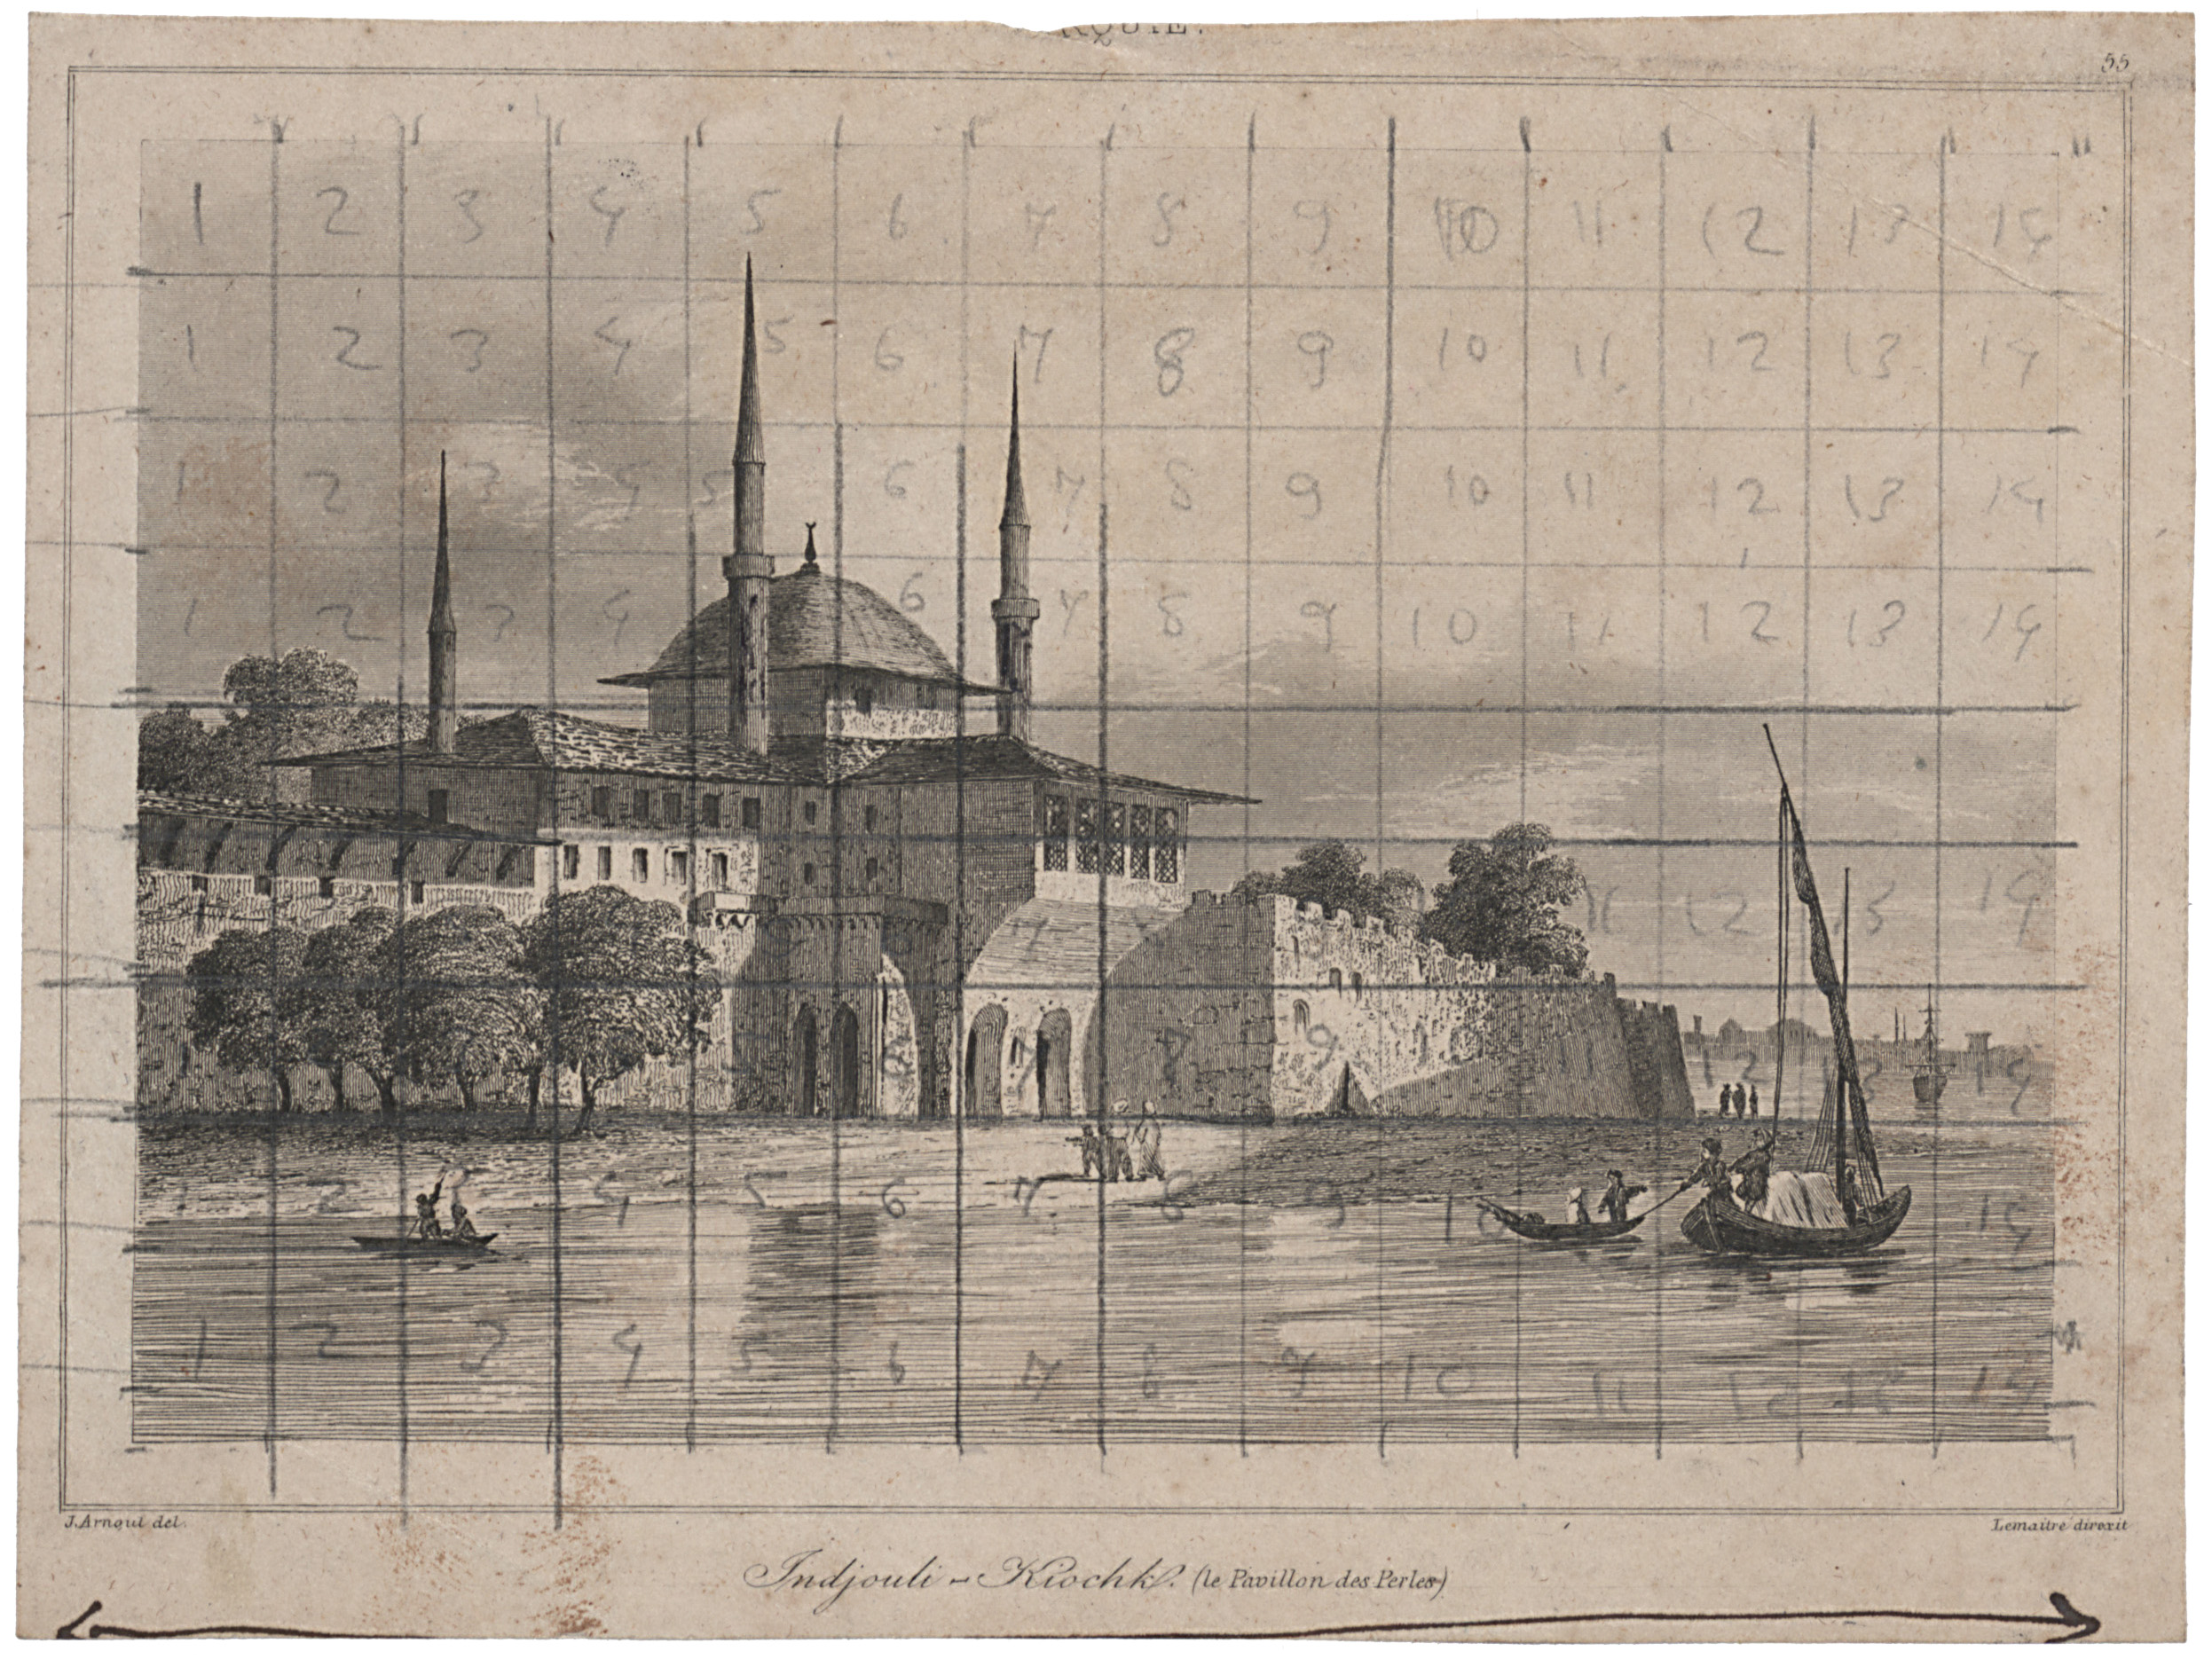 RQUIE.
55
1 2 3 4 5 6 7 8 9 10 11 12 13 14
1 2 3 4 5 6 7 8 9 10 11 12 13 14
1 2 3 4 5 6 7 8 9 10 11 12 13 14
1 2 3 4 6 7 8 9 10 11 12 13 14
7 11 12 13 14
7 7 9 11 12 13 14
1 2 4 5 6 7 8 9 10 14
1 2 3 4 5 6 7 8 9 10 11 12 13 14
J. Arnoul del.
Lemaitre direxit
Indjouli - Kiochk. (le Pavillon des Perles)